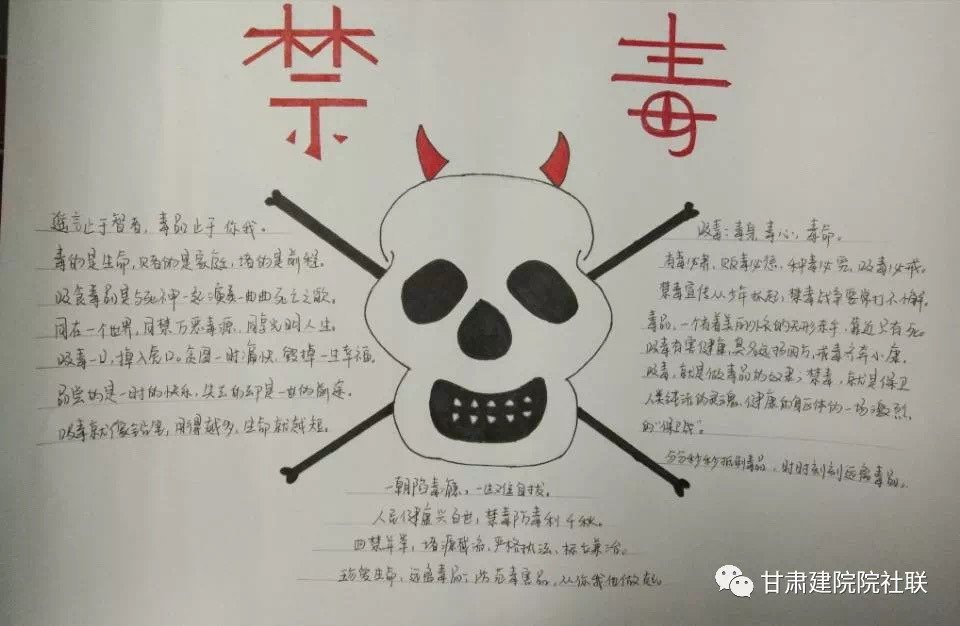 禁毒
谣言止于智者，毒品止于你我。
毒的是生命，只有的是家庭，堵的是前程。
吸食毒品是与死神一起演奏一曲曲死亡之歌。
同在一个世界，同禁万恶毒源，同享光明人生。
吸毒一口，掉入虎口。贪图一时痛快，毁掉一生幸福。
品尝的是一时的快乐，失去的却是一世的前途。
吸毒就像铅笔，用得越多，生命就越短。
吸毒：毒身，毒心，毒命。
有毒必肃，贩毒必惩，种毒必究，吸毒必戒。
禁毒宣传从少年抓起，禁毒战争要常打不懈。
毒品，一个有着美丽外衣的无形杀手，靠近只有死。
吸毒有害健康，莫名远扬四方，戒毒齐奔小康。
吸毒，就是做毒品的奴隶；禁毒，就是保卫
人类纯洁的灵魂，健康的身体的一场激烈
的“保卫战”。
分分秒秒抵制毒品，时时刻刻远离毒品。
一朝陷毒窟，一生难自拔。
人民健康兴百世，禁毒防毒利千秋。
四禁并举，堵源截流，严格执法，标本兼治。
珍爱生命，远离毒品；防范毒害品，从你我他做起。
甘肃建院院社联